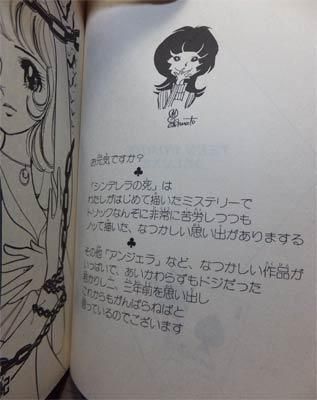 お元気ですか?
♣
「シンデレラの死」は
わたしがはじめて描いたミステリーで
トリックなんぞに非常に苦労しつつも
ノッて描いた、なつかしい思い出がありまする
♣
その他「アンジェラ」など、なつかしい作品が
いっぱいで、あいかわらずもドジだった
三年前を思い出し
これからもがんばらねばと
っているのでございます